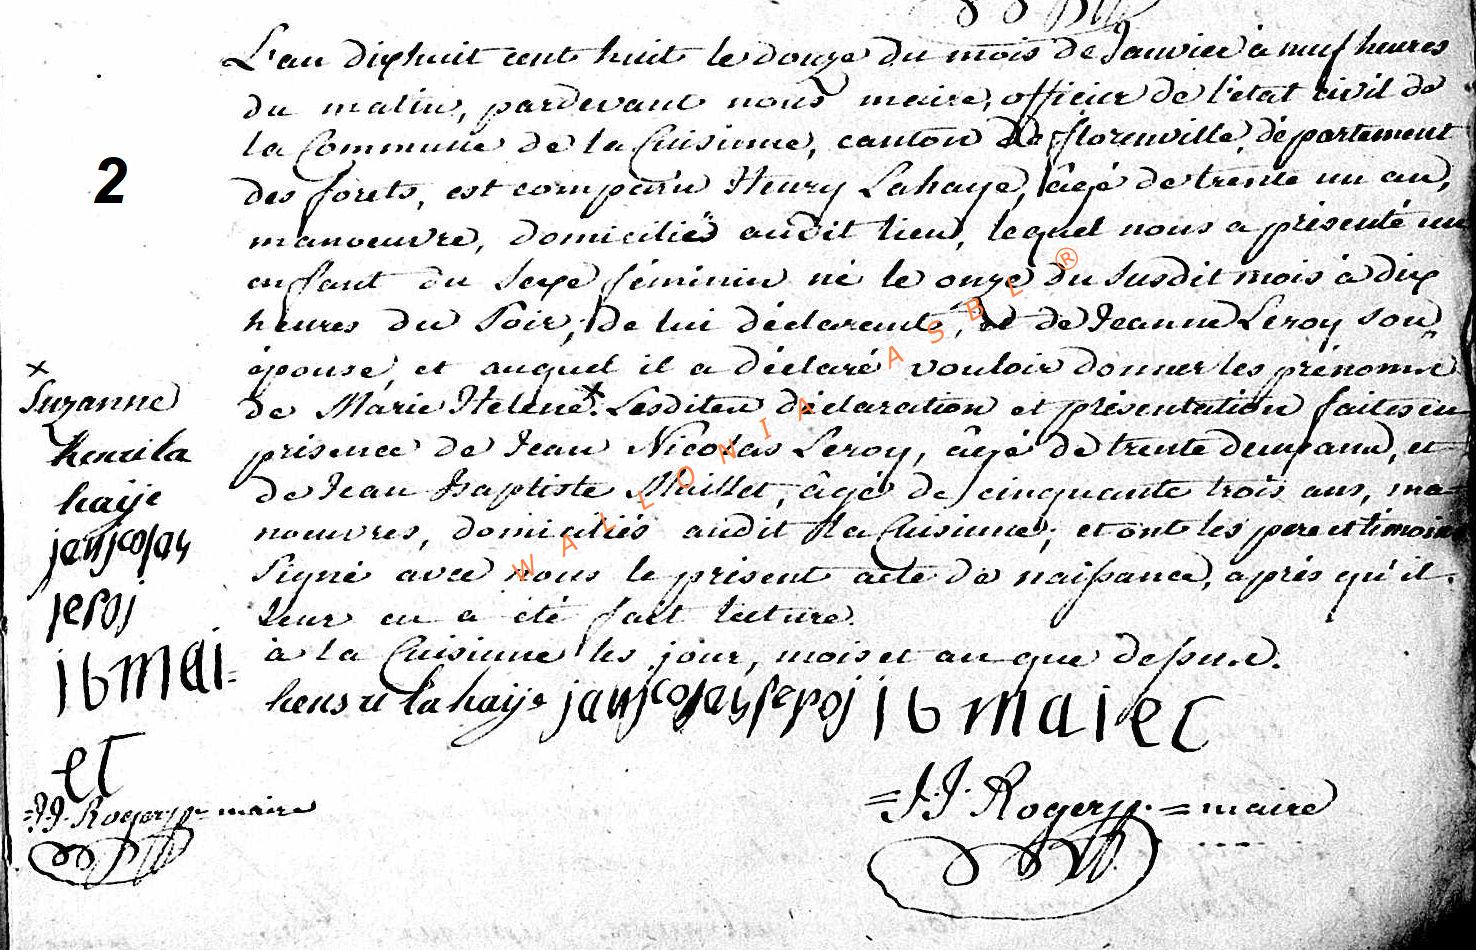 L'an dixhuit cent huit le douze du mois de Janvier à neuf heures
du matin, pardevant nous maire, officier de l'état civil de
la Commune de la Cuisinne, canton de florenville, département
des forets, est comparu Henry Lahaye, âgé de trente un an,
manoeuvre, domicilié audit lieu, lequel nous a présenté un
enfant du sexe féminin né le onze du susdit mois à dix
heures du soir, de lui déclarant, et de Jeanne Leroy son
épouse, et auquel il a déclaré vouloir donner les prénoms
de Marie Helene x. Lesdites déclaration et présentation faites en
présence de Jean Nicolas Leroy, âgé de trente deux ans, et
de Jean Baptiste Maillet, âgé de cinquante trois ans, ma-
noeuvres, domiciliés audit la Cuisinne; et ont les pere et témoins
signé avec nous le présent acte de naissance, après qu'il
leur en a été fait lecture.
à la Cuisinne les jour, mois et an que dessus.
henri lahaije janjcolas leroj j b maiet
= J.J. Rogery = maire
x
Suzanne
henri la
haije
janjcolas
leroj
j b mai =
et
= J.J. Rogery maire
2
WALLONIA ASBL ®